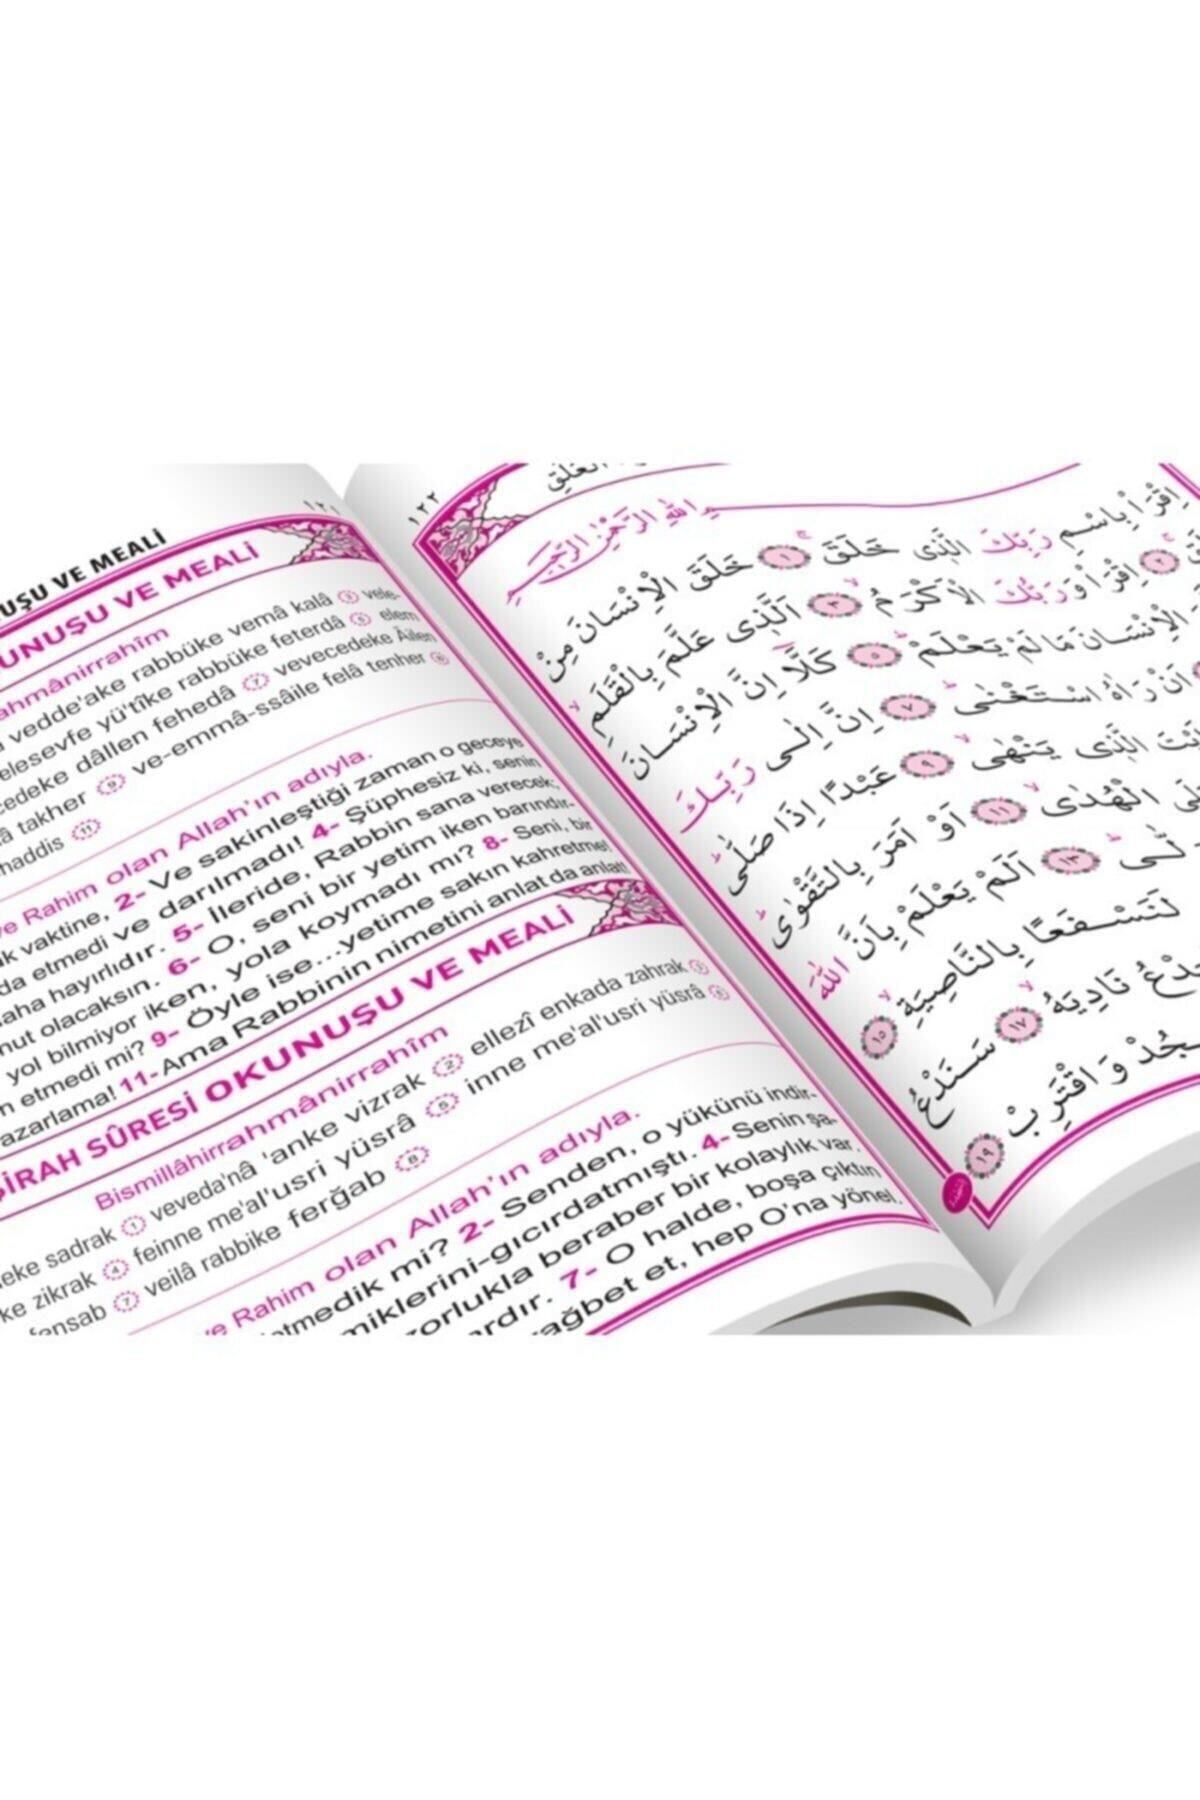 ١٢١
UŞU VE MEALİ
UNUŞU VE MEALİ
ahmânirrahîm
vedde'ake rabbüke vemâ kalâ ③ vele-
elesevfe yü'tîke rabbüke feterdâ ⑤ elem
cedeke dâllen fehedâ ⑦ vevecedeke Âilen
â takher ⑨ ve-emmâ-ssâile felâ tenher ⑩
haddis ⑪
ve Rahim olan Allah'ın adıyla.
k vaktine, 2- Ve sakinleştiği zaman o geceye
da etmedi ve darılmadı! 4- Şüphesiz ki, senin
daha hayırlıdır. 5- İleride, Rabbin sana verecek;
nut olacaksın. 6- O, seni bir yetim iken barındır-
yol bilmiyor iken, yola koymadı mı? 8- Seni, bir
n etmedi mi? 9- Öyle ise...yetime sakın kahretme!
azarlama! 11- Ama Rabbinin nimetini anlat da anlat!
ŞİRAH SÛRESİ OKUNUŞU VE MEALİ
Bismillâhirrahmânirrahîm
leke sadrak ① veveda'nâ 'anke vizrak ② ellezî enkada zahrak ③
ke zikrak ④ feinne me'al'usri yüsrâ ⑤ inne me'al'usri yüsrâ ⑥
fensab ⑦ veilâ rabbike ferğab ⑧
ve Rahim olan Allah'ın adıyla.
etmedik mi? 2- Senden, o yükünü indir-
miklerini-gıcırdatmıştı. 4- Senin şa-
zorlukla beraber bir kolaylık var.
ardır. 7- O halde, boşa çıktın
rağbet et, hep O'na yönel.
١٢٢
الْعَلَقِ
اللهِ الرَّحْمٰنِ الرَّحِيمِ
اِقْرَاْ بِاسْمِ رَبِّكَ الَّذِى خَلَقَ ﴿١﴾ خَلَقَ الْاِنْسَانَ مِنْ
﴿٢﴾ اِقْرَاْ وَرَبُّكَ الْاَكْرَمُ ﴿٣﴾ اَلَّذِى عَلَّمَ بِالْقَلَمِ
الْاِنْسَانَ مَا لَمْ يَعْلَمْ ﴿٥﴾ كَلَّا اِنَّ الْاِنْسَانَ
اَنْ رَاٰهُ اسْتَغْنٰى ﴿٧﴾ اِنَّ اِلٰى رَبِّكَ
الَّذِى يَنْهٰى ﴿٩﴾ عَبْدًا اِذَا صَلّٰى
الْهُدٰى ﴿١١﴾ اَوْ اَمَرَ بِالتَّقْوٰى
﴿١٣﴾ اَلَمْ يَعْلَمْ بِاَنَّ اللهَ
لَنَسْفَعًا بِالنَّاصِيَةِ ﴿١٥﴾
نَادِيَهُ ﴿١٧﴾ سَنَدْعُ
وَاقْتَرِبْ ﴿١٩﴾